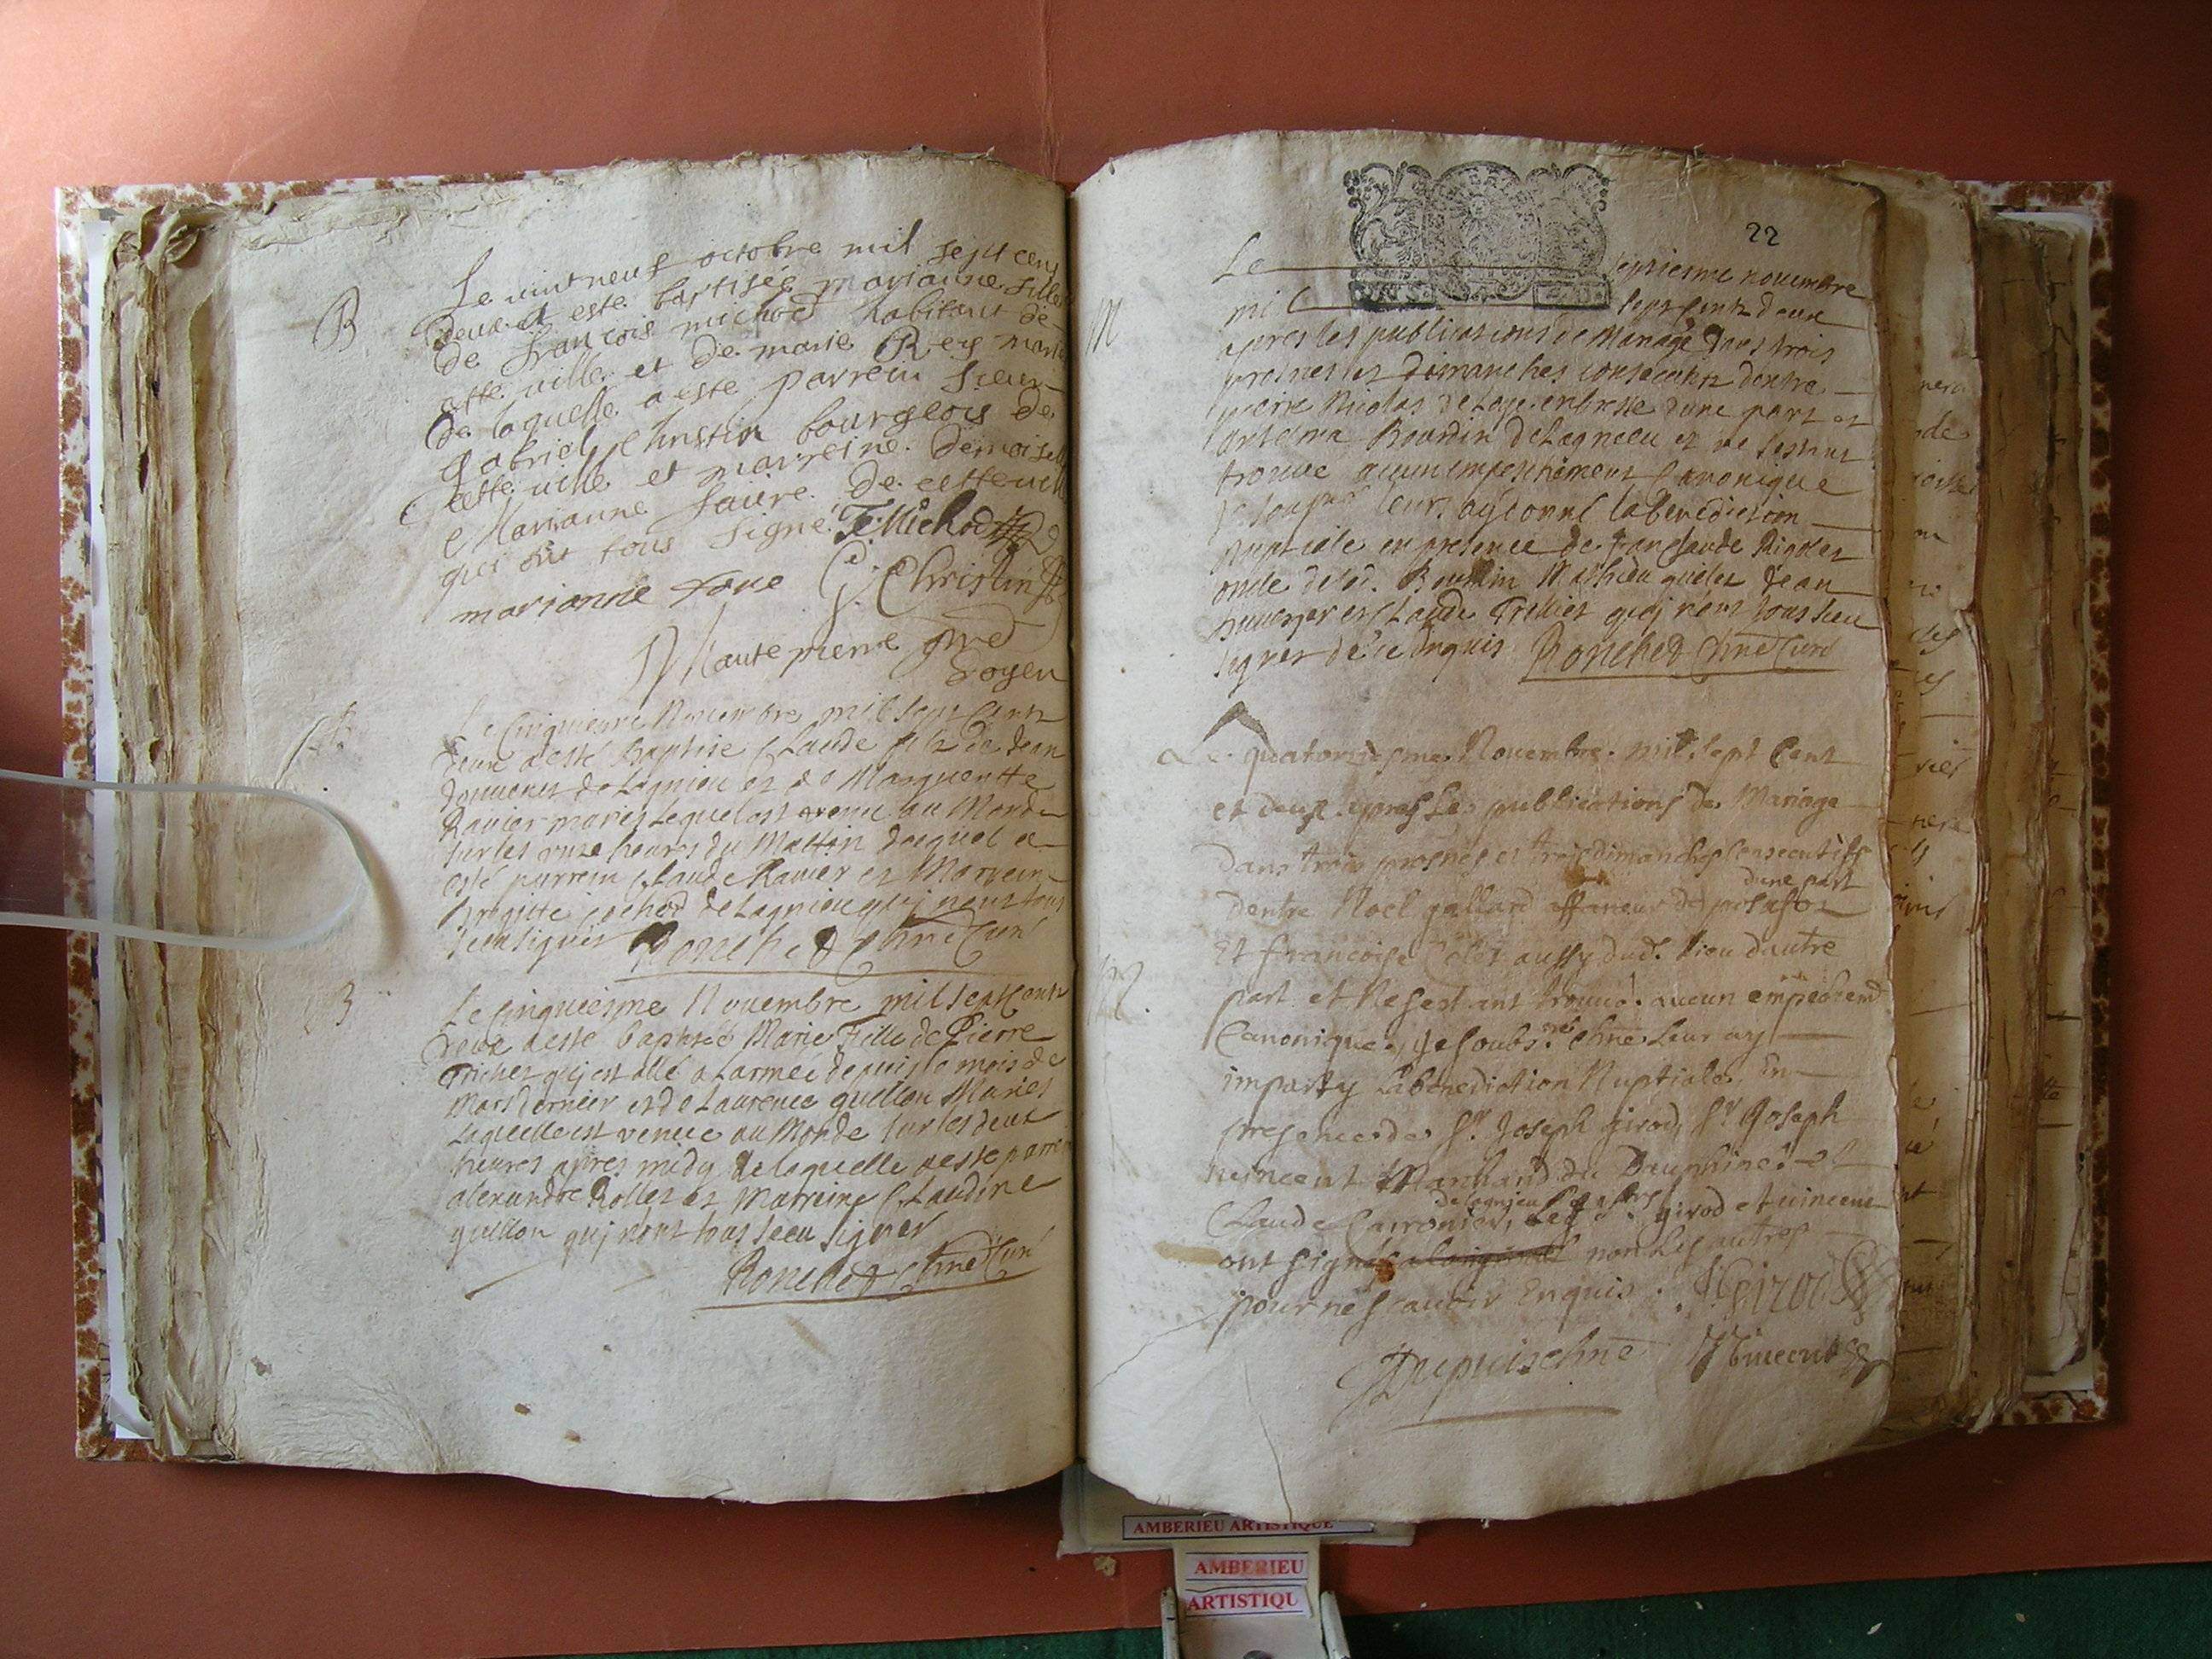 B
Le vint neuf octobre mil sept cens
deux et este baptisée marianne fille
de francois michod habitant de
cette ville et de marie Rey mari
de laquelle a este parrein sieur
gabriel Christin bourgeois de
cette ville et marreine demoiselle
Marianne faure de cette ville
qui ont tous signé F. Michod
marianne fore G. Christin
Hautepierre
Doyen
Le Cinquiesme Novembre mil sept Cents
deux a esté Baptise Claude fils de Jean
de Lagnieu et de Margueritte
Ravier maries lequel est venu au Monde
sur les onze heures du Mattin duquel a
esté parrein Claude Ravier et Marrein
cochod de Lagnieu quj nont tous
sceu signer Ronchet chne Curé
B
Le Cinquiesme Nouembre mil sept Cents
deux a esté baptisée Marie Fille de Pierre
Trichet quj est allé a larmée depuis le mois de
Mars dernier et de Laurence guillon Mariés
Laquelle est venue au Monde sur les deux
heures apres midy de laquelle a este parre
alexandre Rollet et Marreine Claudine
guillon quj nont tous sceu signer
Ronchet chne Curé
22
M
Le septiesme nouembre
mil sept Cents deux
apres les publications de Mariage dans trois
prosnes et dimanches consecutifs dentre
Nicolas dune part et
Bourdin de Lagnieu et ne sestant
trouve aucun empeschement Canonique
leurs ay donné la benediction
Nuptiale en presence de Jan Claude Rigolet
oncle de lad. Bourdin Mathieu guilet Jean
et Claude Trillet quj nont tous sceu
signer de ce enquis Ronchet chne Curé
Le quatorziesme Nouembre mil sept Cent
et deux apres les publications de Mariage
Dans trois prosnes et trois dimanches Consecutifs
dune part
dentre Noel gallard affaneur de
Et francoise Colet aussy dud. lieu dautre
M
part et Ne sestant trouué aucun empechemt
Canonique, Je soubs.né chne Leur ay
imparty La benediction Nuptiale, En
presence de Sr. Joseph girod, Sr Joseph
vincent Marchand du Dauphiné et
de lagnieu
Claude Caironier, Lesd. Srs girod et vincent
ont signés a loriginal non Les autres
pour ne scauoir Enquis. J. Girod
Dupuis chne J Vincent
AMBERIEU ARTISTIQUE
AMBERIEU
ARTISTIQU